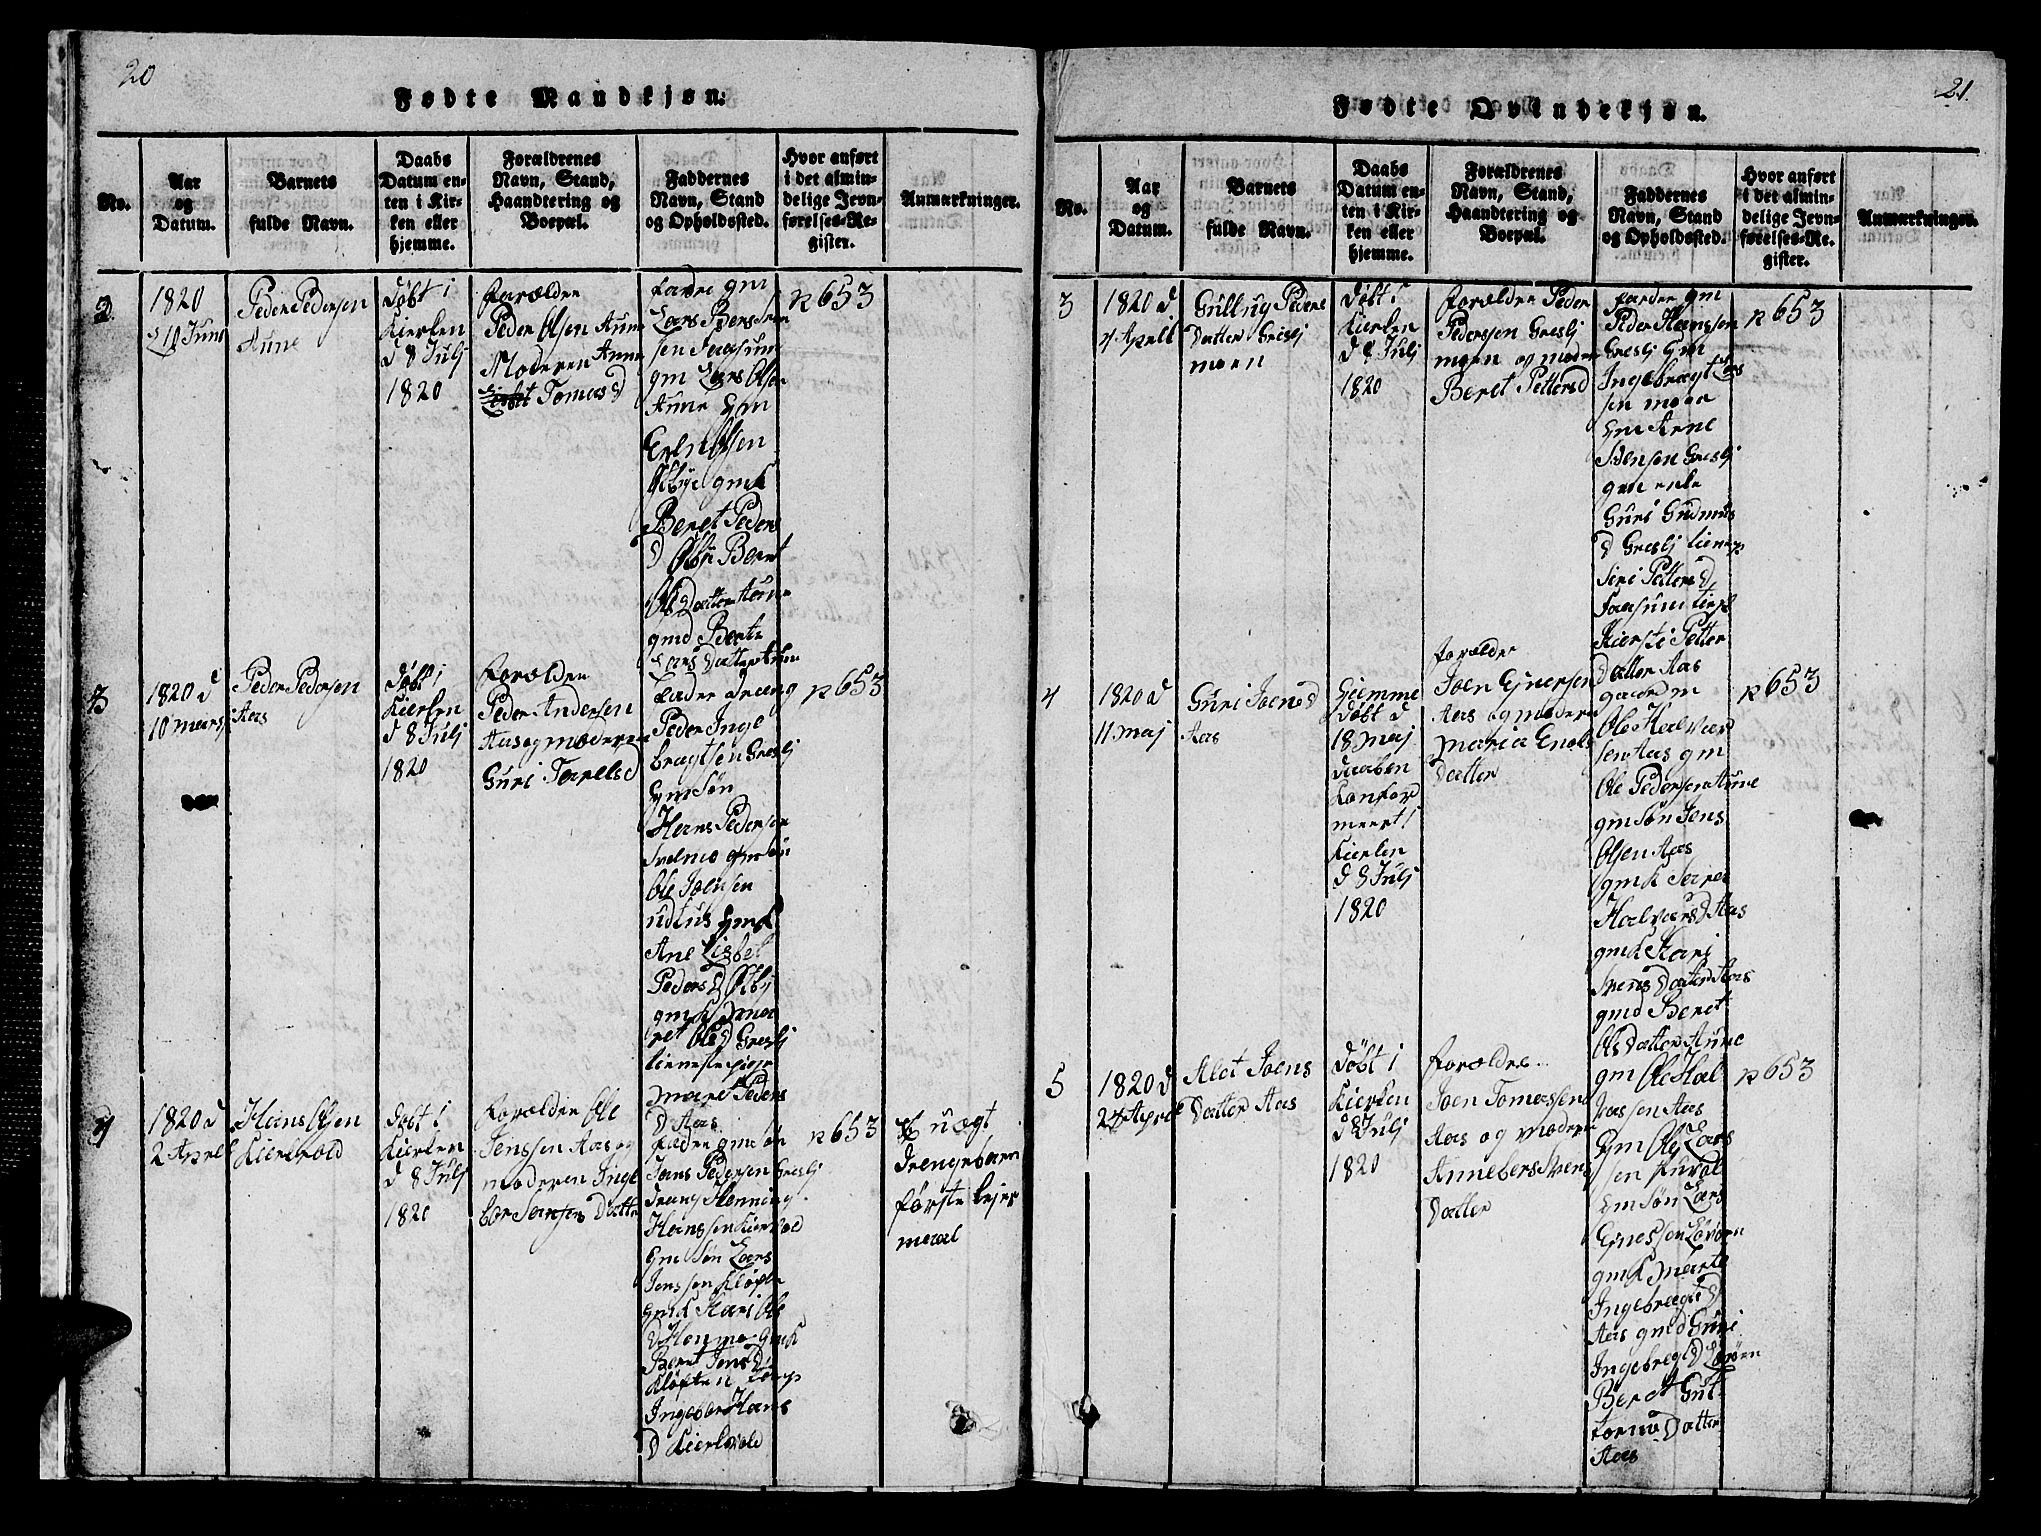 20
Fødte Mandkjøn.
No.
Aar
og
Datum.
Barnets
fulde Navn.
Daabs
Datum en-
ten i Kir-
ken eller
hjemme.
Forældrenes
Navn, Stand,
Haandtering og
Boepæl.
Faddernes
Navn, Stand
og Opholdssted.
Hvor anført
i det almin-
delige Jevn-
førelses-Re-
gister.
Anmærkninger.
2
1820
d 10 Juni
Peder Pedersen
Aune
døbt i
Kierken
d 8 Julj
1820
forældre
Peder Olsen Aune
Moderen Anne
Tomas D
fadre gm
Lars
gm Lars Olsen
Aune gm
Olsen
Østbye gmk
Beret Peders
D Østbj Beret
Ols Datter Aune
gmd Berte
Lars Datter Aune
n 653
3
1820 d
10 mars
Peder Pedersen
Aas
døbt i
Kierken
d 8 Julj
1820
forældre
Peder Andersen
Aas og moderen
Guri Tarels D
fadre dræng
Peder Inge
bragtsen Greslj
gm Søn
Hans Pedersen
Svelmo gm søn
Ole Joensen
udtus gmk
Ane Lisbet
Peders D Østbj
gmk mar
ret Ols D Greslj
tieneste pige
mari Peders
D Aas
n 653
4
1820 d
2 Aprel
Hans Olsen
Kierkvold
døbt i
Kierken
d 8 Julj
1820
forældre Ole
Jenssen Aas og
moderen Inge
bor Datter
fadre gm søn
Jens Pedersen Greslj
dræng Henning
Hanssen Kierkvold
gm Søn Lars
Jenssen Kløften
gmk Kari Ole
D Henmo gmk
Beret Jens D
Kløften
Ingebor Hans
D Kierkvold
n 653
Et uægt
Drengebarn
første lejer
maal
21.
Fødte Qvindekjøn.
No.
Aar
og
Datum.
Barnets
fulde Navn.
Daabs
Datum en-
ten i Kir-
ken eller
hjemme.
Forældrenes
Navn, Stand,
Haandtering og
Boepæl.
Faddernes
Navn, Stand
og Opholdssted.
Hvor anført
i det almin-
delige Jevn-
førelses-Re-
gister.
Anmærkninger.
3
1820 d
4 Aprell
Gullug Peders
Datter Greslj
moen
døbt i
Kierken
d 8 Julj
1820
forældre Peder
Pederssen Greslj
moen og moder
Beret Petters D
fardre gm
Peder Hanssen
Greslj gm
Ingebrægt Lars
sen moen
gm Arne
Greslj
gm enke
Guri Gudmus
D Greslj
Siri Petters D
Faasum
Kiersti Petter
Datter Aas
n 653
4
1820 d
11 maj
Guri Joens D
Aas
Giemme
døbt d
18 maj
daaben
konfor
meert i
Kierken
d 8 Julj
1820
forældre
Joen Ejnersen
Aas og moderen
maria Enols
Datter
gaardm
Ole Halvaar
sen Aas gm
Ole Pedersen Aune
gm Søn Jens
Olsen Aas
gmk
Halvaars D Aas
gmk Kari
Svens Datter Aas
gmd Beret
Ols Datter Aune
n 653
5
1820 d
24 Aprel
Alet Joens
Datter Aas
døbt i
Kierken
d 8 Julj
1820
forældre
Joen Tomassen
Aas og moderen
Anneber Svens
Datter
gm Ole Hal
varssen Aas
gm Ole Lars
sen
gm Søn Lars
Ejnessen Løvøen
gmk marte
Ingebrægts D
Aas gmd Guri
Ingebregts D Løvøen
Beret Gut
tormo Datter
Aas
n 653